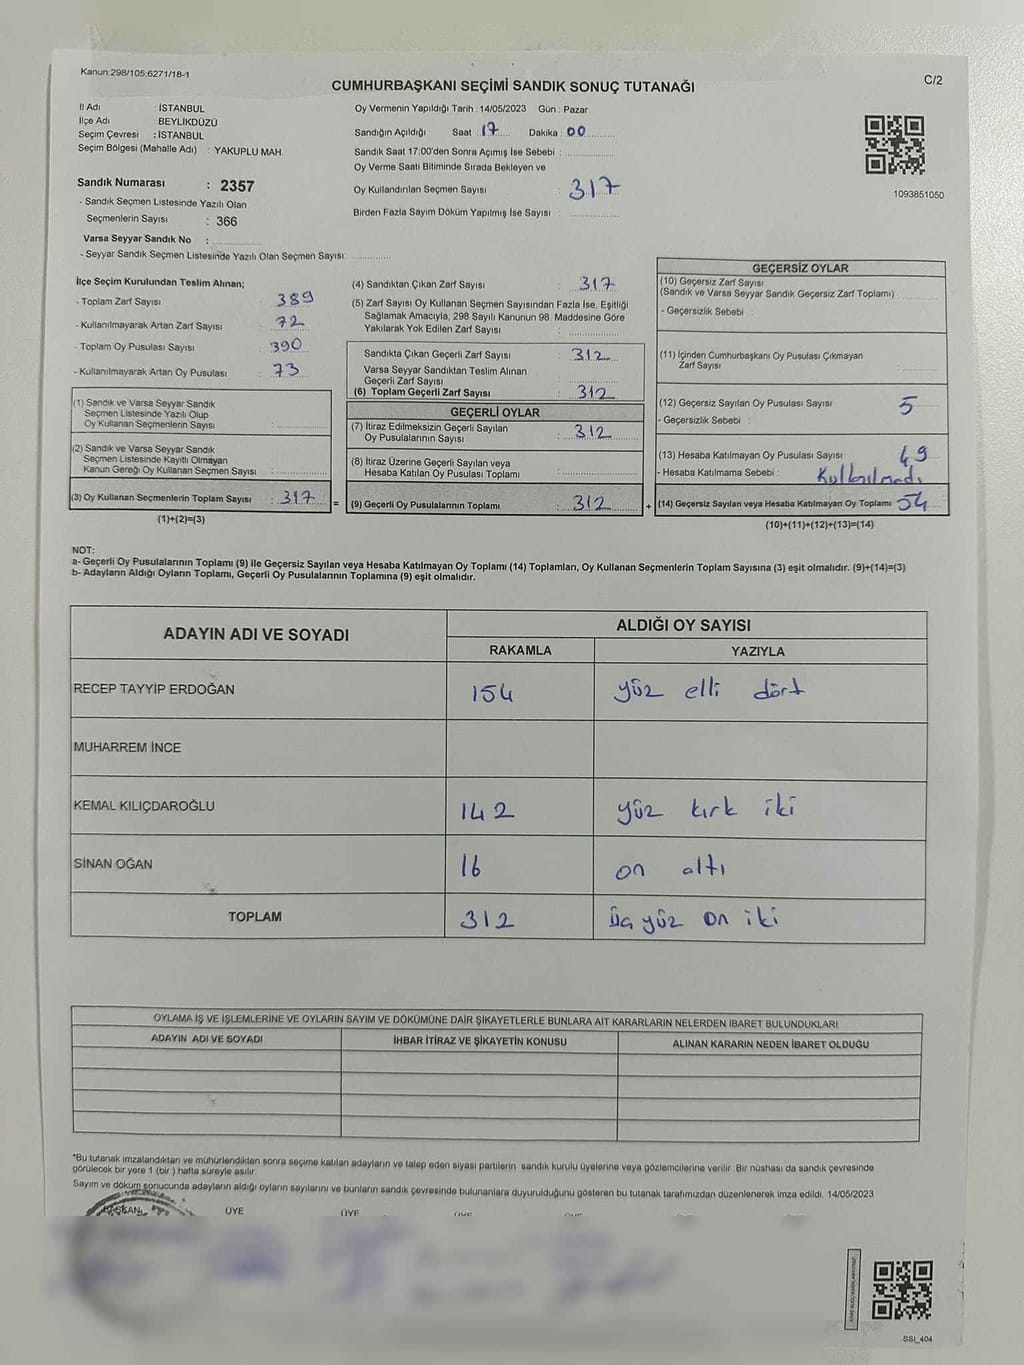 Kanun:298/105;6271/18-1
C/2
CUMHURBAŞKANI SEÇİMİ SANDIK SONUÇ TUTANAĞI
İl Adı : İSTANBUL
İlçe Adı : BEYLİKDÜZÜ
Seçim Çevresi : İSTANBUL
Seçim Bölgesi (Mahalle Adı) : YAKUPLU MAH.
Oy Vermenin Yapıldığı Tarih : 14/05/2023 Gün : Pazar
Sandığın Açıldığı Saat : 17 Dakika : 00
Sandık Saat 17:00'den Sonra Açımış İse Sebebi :
Oy Verme Saati Bitiminde Sırada Bekleyen ve
Oy Kullandırılan Seçmen Sayısı 317
Birden Fazla Sayım Döküm Yapılmış İse Sayısı :
1093851050
Sandık Numarası : 2357
- Sandık Seçmen Listesinde Yazılı Olan
Seçmenlerin Sayısı : 366
Varsa Seyyar Sandık No :
- Seyyar Sandık Seçmen Listesinde Yazılı Olan Seçmen Sayısı:
İlçe Seçim Kurulundan Teslim Alınan;
- Toplam Zarf Sayısı : 389
- Kullanılmayarak Artan Zarf Sayısı : 72
- Toplam Oy Pusulası Sayısı : 390
- Kullanılmayarak Artan Oy Pusulası : 73
(1) Sandık ve Varsa Seyyar Sandık
Seçmen Listesinde Yazılı Olup
Oy Kullanan Seçmenlerin Sayısı :
(2) Sandık ve Varsa Seyyar Sandık
Seçmen Listesinde Kayıtlı Olmayan
Kanun Gereği Oy Kullanan Seçmen Sayısı :
(3) Oy Kullanan Seçmenlerin Toplam Sayısı : 317 =
(1)+(2)=(3)
(4) Sandıktan Çıkan Zarf Sayısı : 317
(5) Zarf Sayısı Oy Kullanan Seçmen Sayısından Fazla İse, Eşitliği
Sağlamak Amacıyla, 298 Sayılı Kanunun 98. Maddesine Göre
Yakılarak Yok Edilen Zarf Sayısı :
Sandıkta Çıkan Geçerli Zarf Sayısı : 312
Varsa Seyyar Sandıktan Teslim Alınan
Geçerli Zarf Sayısı :
(6) Toplam Geçerli Zarf Sayısı : 312
GEÇERLİ OYLAR
(7) İtiraz Edilmeksizin Geçerli Sayılan
Oy Pusulalarının Sayısı : 312
(8) İtiraz Üzerine Geçerli Sayılan veya
Hesaba Katılan Oy Pusulası Toplamı :
(9) Geçerli Oy Pusulalarının Toplamı : 312 +
GEÇERSİZ OYLAR
(10) Geçersiz Zarf Sayısı
(Sandık ve Varsa Seyyar Sandık Geçersiz Zarf Toplamı) :
- Geçersizlik Sebebi :
(11) İçinden Cumhurbaşkanı Oy Pusulası Çıkmayan
Zarf Sayısı :
(12) Geçersiz Sayılan Oy Pusulası Sayısı : 5
- Geçersizlik Sebebi :
(13) Hesaba Katılmayan Oy Pusulası Sayısı : 49
- Hesaba Katılmama Sebebi : Kullanılmadı
(14) Geçersiz Sayılan veya Hesaba Katılmayan Oy Toplamı : 54
(10)+(11)+(12)+(13)=(14)
NOT:
a- Geçerli Oy Pusulalarının Toplamı (9) ile Geçersiz Sayılan veya Hesaba Katılmayan Oy Toplamı (14) Toplamları, Oy Kullanan Seçmenlerin Toplam Sayısına (3) eşit olmalıdır. (9)+(14)=(3)
b- Adayların Aldığı Oyların Toplamı, Geçerli Oy Pusulalarının Toplamına (9) eşit olmalıdır.
ADAYIN ADI VE SOYADI
ALDIĞI OY SAYISI
RAKAMLA YAZIYLA
RECEP TAYYİP ERDOĞAN 154 yüz elli dört
MUHARREM İNCE
KEMAL KILIÇDAROĞLU 142 yüz kırk iki
SİNAN OĞAN 16 on altı
TOPLAM 312 üç yüz on iki
OYLAMA İŞ VE İŞLEMLERİNE VE OYLARIN SAYIM VE DÖKÜMÜNE DAİR ŞİKAYETLERLE BUNLARA AİT KARARLARIN NELERDEN İBARET BULUNDUKLARI
ADAYIN ADI VE SOYADI İHBAR İTİRAZ VE ŞİKAYETİN KONUSU ALINAN KARARIN NEDEN İBARET OLDUĞU
*Bu tutanak imzalandıktan ve mühürlendikten sonra seçime katılan adayların ve talep eden siyasi partilerin sandık kurulu üyelerine veya gözlemcilerine verilir. Bir nüshası da sandık çevresinde
görülecek bir yere 1 (bir ) hafta süreyle asılır.
Sayım ve döküm sonucunda adayların aldığı oyların sayılarını ve bunların sandık çevresinde bulunanlara duyurulduğunu gösteren bu tutanak tarafımızdan düzenlenerek imza edildi. 14/05/2023
BAŞKAN ÜYE ÜYE
SSI_404